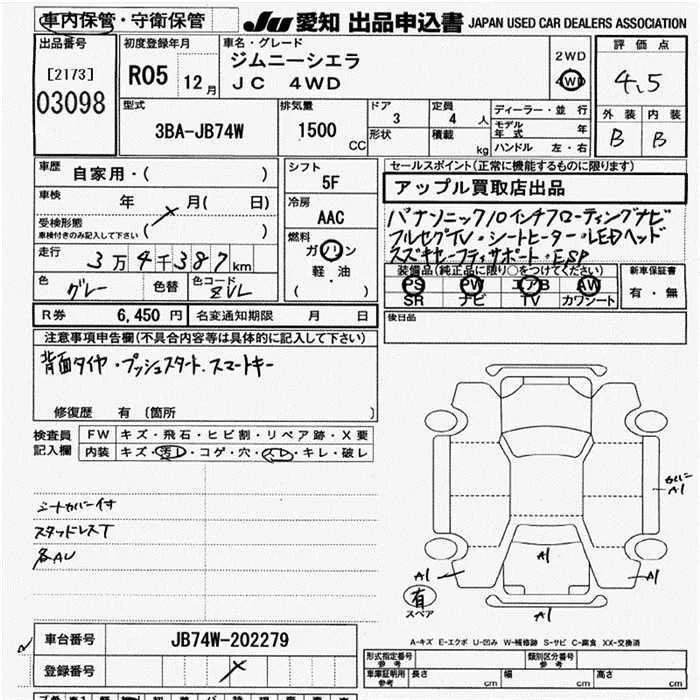 車内保管・守衛保管
JU 愛知 出品申込書 JAPAN USED CAR DEALERS ASSOCIATION
出品番号
[2173]
03098
初度登録年月
R05 12月
車名・グレード
ジムニーシエラ
JC 4WD
2WD
4WD
評価点
4.5
外装 内装
B B
型式
3BA-JB74W
排気量
1500 CC
ドア
3
形状
定員
4 人
積載
kg
ディーラー・並行
モデル年式 年
ハンドル 左・右
車歴
自家用・( )
車検 年 月( 日)
受検形態
車検付きのみ記入して下さい ( )
走行
3万4千387km
色
グレー
色替
色コード
ZVL
シフト
5F
冷房
AAC
燃料
ガソリン
軽・油
( )
セールスポイント(正常に機能するものに限ります)
アップル買取店出品
パナソニック10インチフローティングナビ
フルセグTV・シートヒーター・LEDヘッド
スズキセーフティサポート・ESP
装備品(純正品に限り○をつけてください)
PS PW エアB AW
SR ナビ TV カワシート
新車保証書
有・無
R券 6,450円
名変通知期限 月 日
後日品
注意事項申告欄(不具合内容等は具体的に記入して下さい)
背面タイヤ・プッシュスタート.スマートキー
修復歴 有 〔箇所 〕
検査員記入欄
FW キズ・飛石・ヒビ割・リペア跡・X要
内装 キズ・汚レ・コゲ・穴・スレ・キレ・破レ
シートカバー付
スタッドレスT
各AU
A1
A1
A1
A1
A1
有
スペア
A-キズ E-エクボ U-凹み W-補修跡 S-サビ C-腐食 XX-交換済
車台番号 JB74W-202279
登録番号
形式指定番号 参考
類別区分番号 参考
車庫証明用 参考 長さ cm 幅 cm 高さ cm